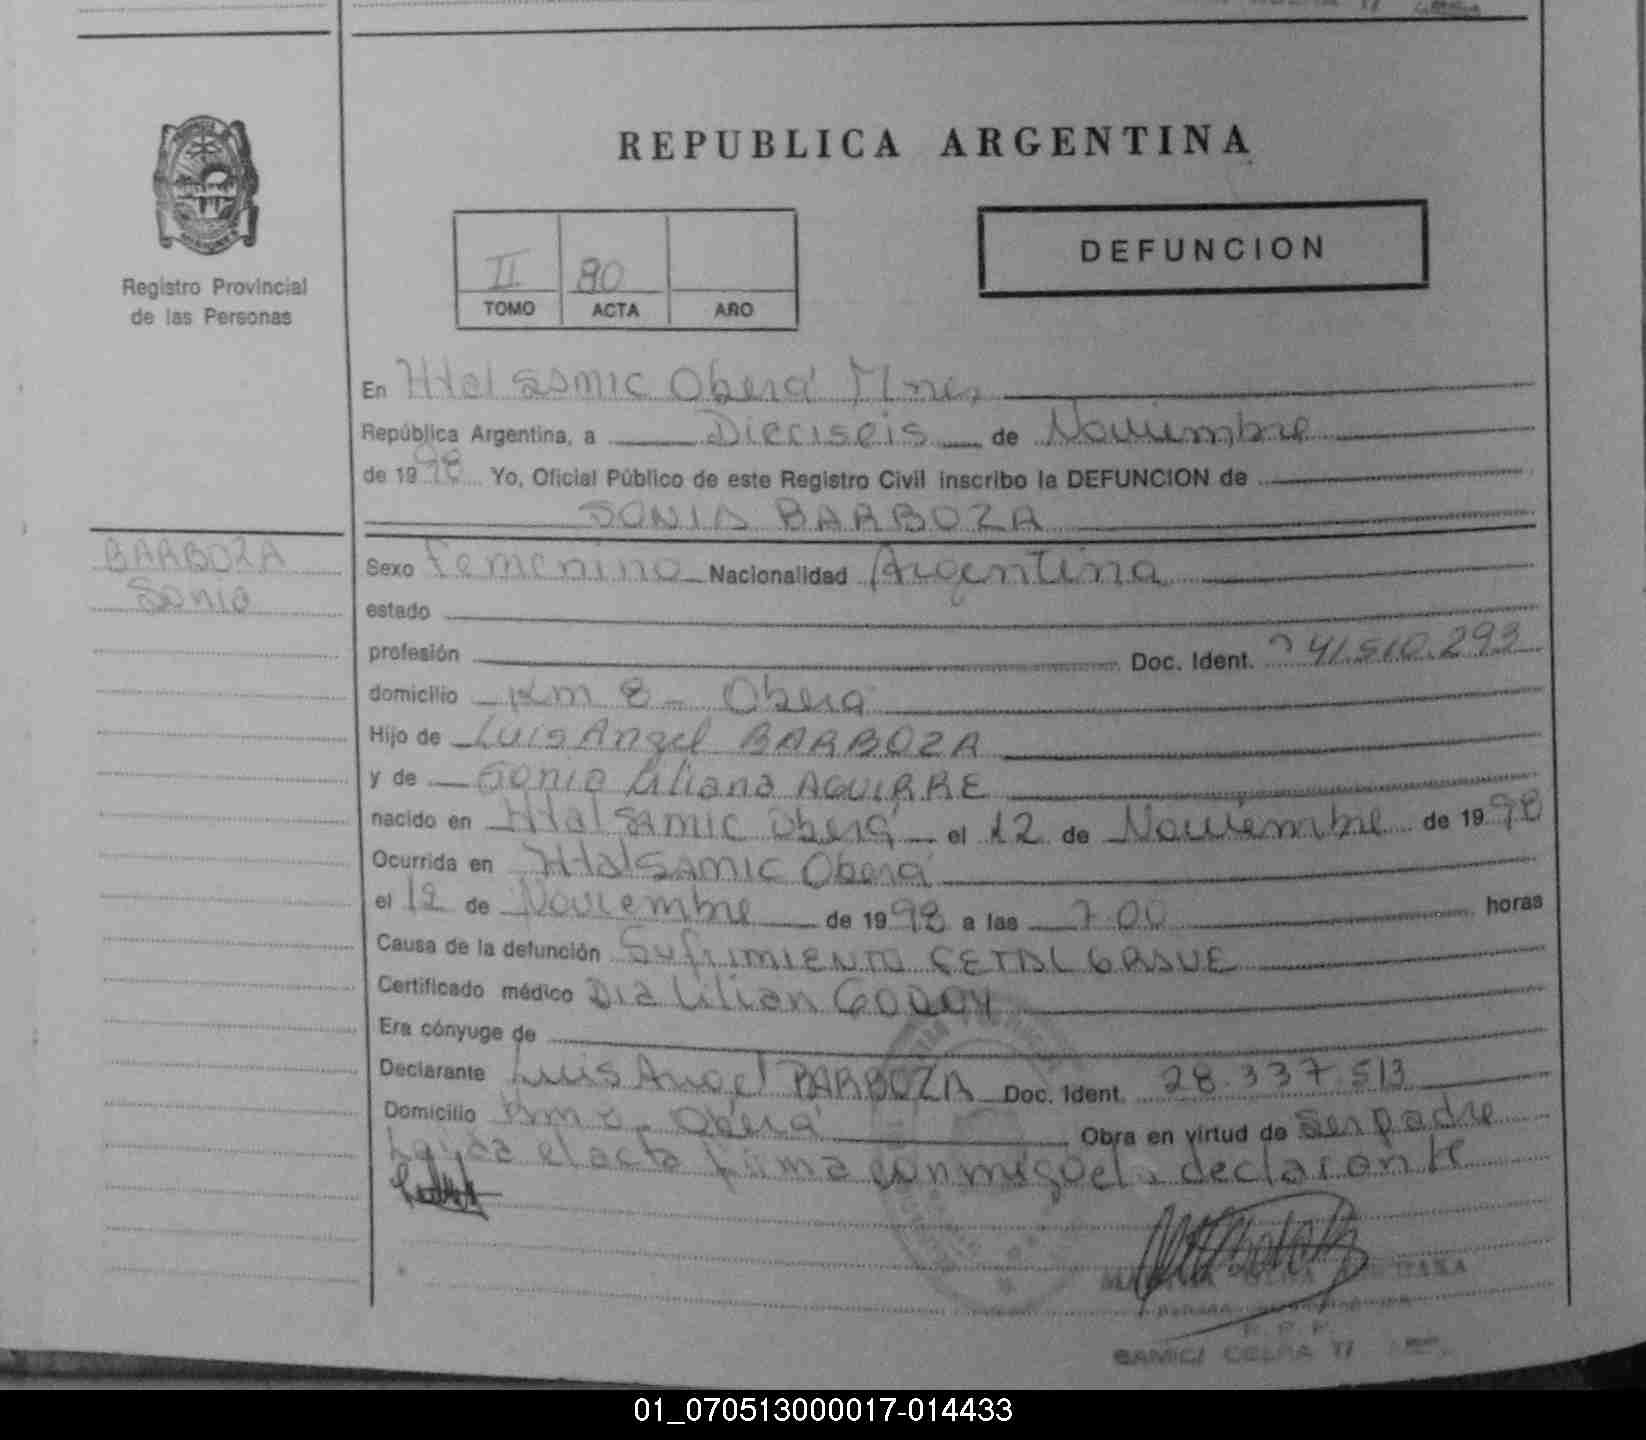 REPUBLICA ARGENTINA
Registro Provincial
de las Personas
II 80
TOMO ACTA AÑO
DEFUNCION
En Htal SAMIC Oberá Mnes
República Argentina, a Dieciseis de Noviembre
de 1998 Yo, Oficial Público de este Registro Civil inscribo la DEFUNCION de
SONIA BARBOZA
BARBOZA
Sonia
Sexo Femenino Nacionalidad Argentina
estado
profesión Doc. Ident. 41.510.293
domicilio Km 8 - Oberá
Hijo de Luis Angel BARBOZA
y de Sonia Liliana AGUIRRE
nacido en Htal SAMIC Oberá el 12 de Noviembre de 1998
Ocurrida en Htal SAMIC Oberá
el 12 de Noviembre de 1998 a las 7.00 horas
Causa de la defunción SUFRIMIENTO FETAL GRAVE
Certificado médico Dra Lilian GODOY
Era cónyuge de
Declarante Luis Angel BARBOZA Doc. Ident. 28.337.513
Domicilio Km 8 - Oberá Obra en virtud de ser padre
Leida el acta firma conmigo el declarante
01_070513000017-014433